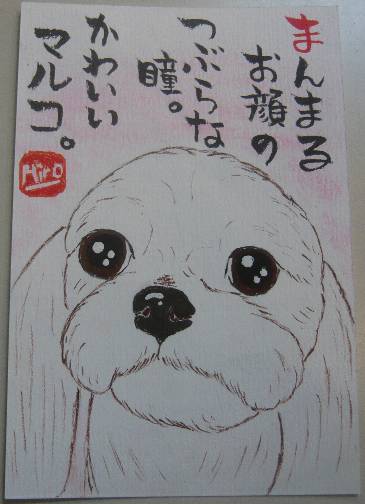 まんまる
お顔の
つぶらな
瞳。
かわいい
マルコ。
Hiro